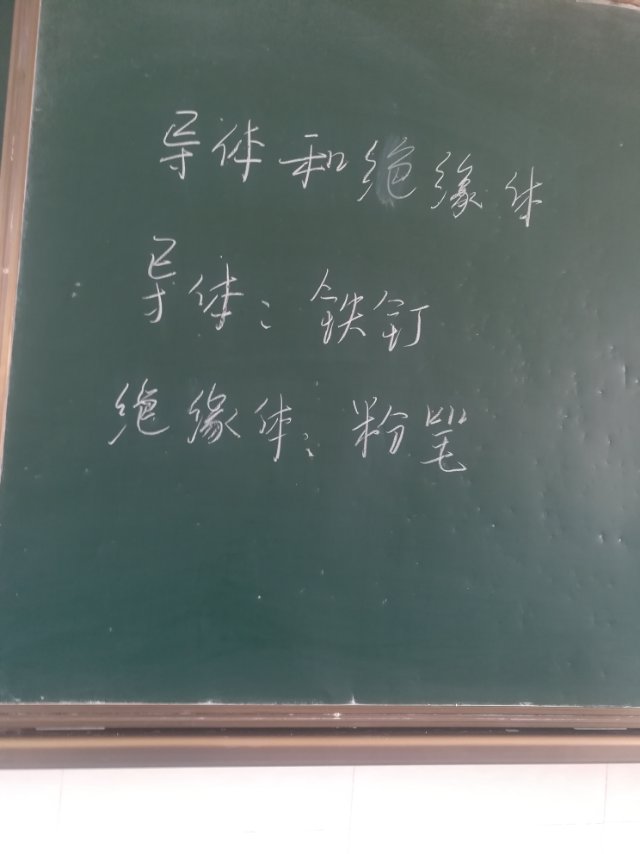 导体和绝缘体
导体：铁钉
绝缘体：粉笔